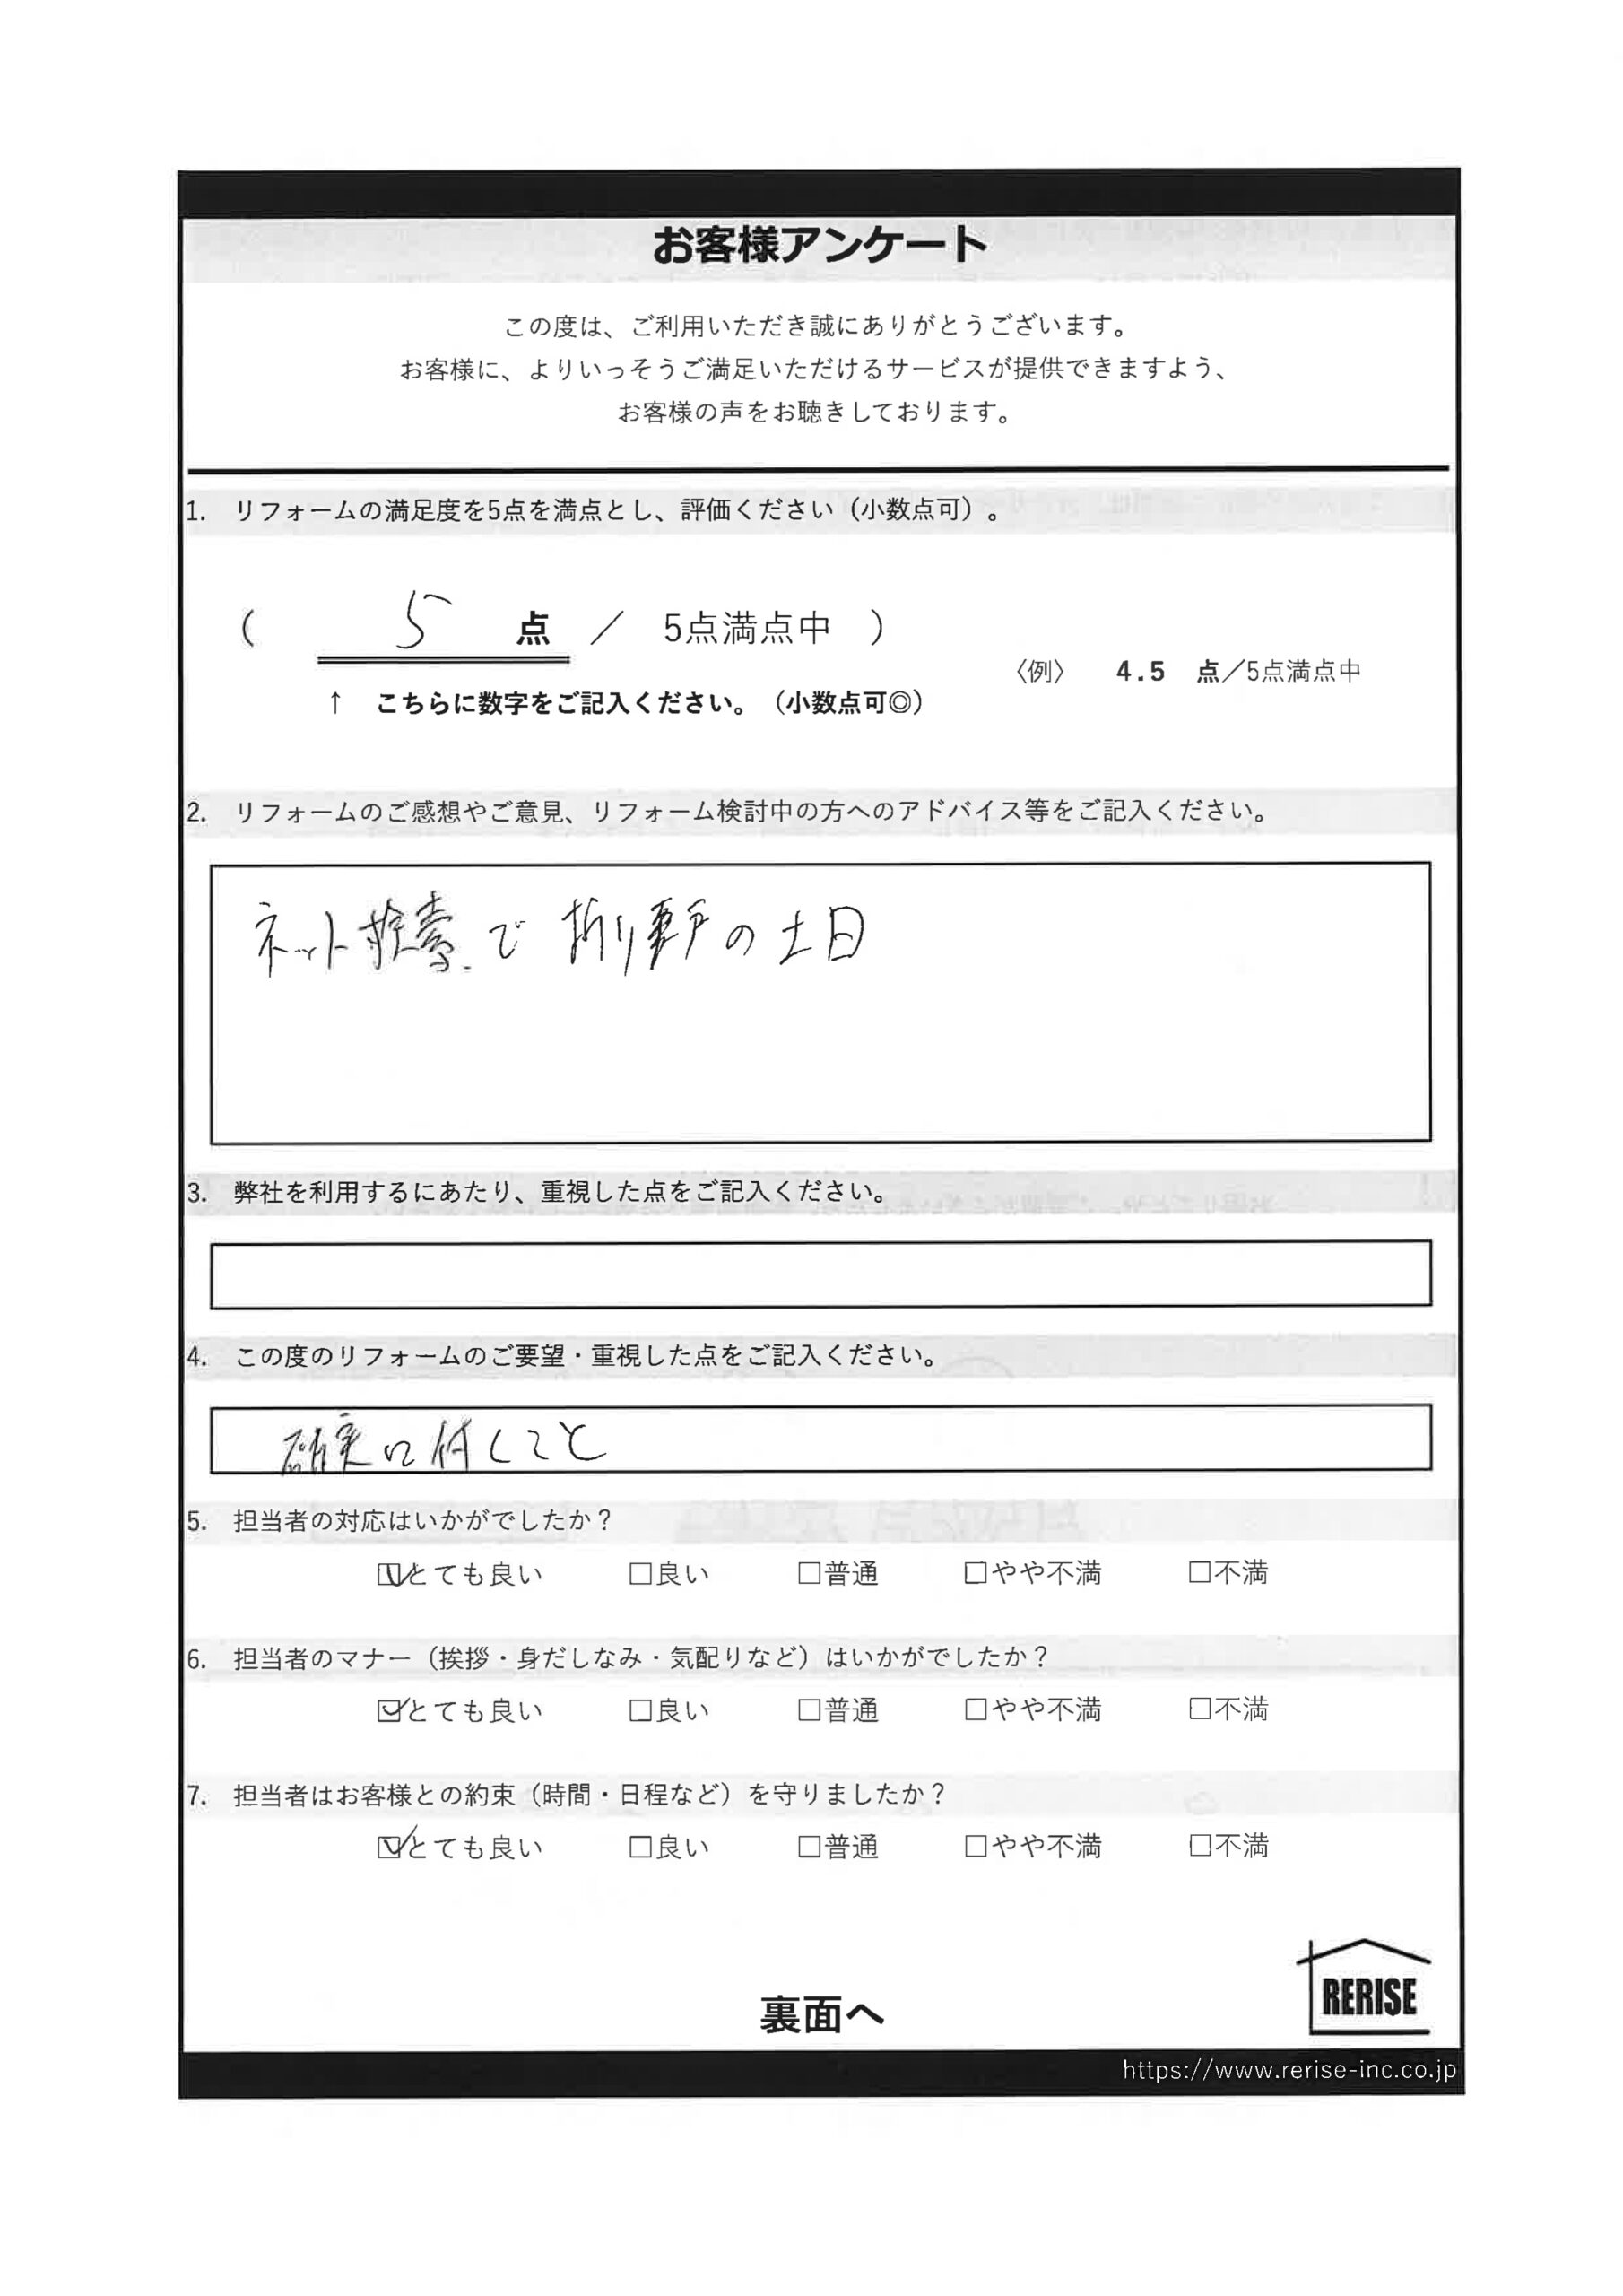 お客様アンケート
この度は、ご利用いただき誠にありがとうございます。
お客様に、よりいっそうご満足いただけるサービスが提供できますよう、
お客様の声をお聴きしております。
1. リフォームの満足度を5点を満点とし、評価ください（小数点可）。
（ 5 点 ／ 5点満点中 ）
〈例〉 4.5 点／5点満点中
↑ こちらに数字をご記入ください。（小数点可◎）
2. リフォームのご感想やご意見、リフォーム検討中の方へのアドバイス等をご記入ください。
ネット検索で折り戸の土日
3. 弊社を利用するにあたり、重視した点をご記入ください。
4. この度のリフォームのご要望・重視した点をご記入ください。
確実に付くこと
5. 担当者の対応はいかがでしたか？
☑とても良い □良い □普通 □やや不満 □不満
6. 担当者のマナー（挨拶・身だしなみ・気配りなど）はいかがでしたか？
☑とても良い □良い □普通 □やや不満 □不満
7. 担当者はお客様との約束（時間・日程など）を守りましたか？
☑とても良い □良い □普通 □やや不満 □不満
RERISE
裏面へ
https://www.rerise-inc.co.jp